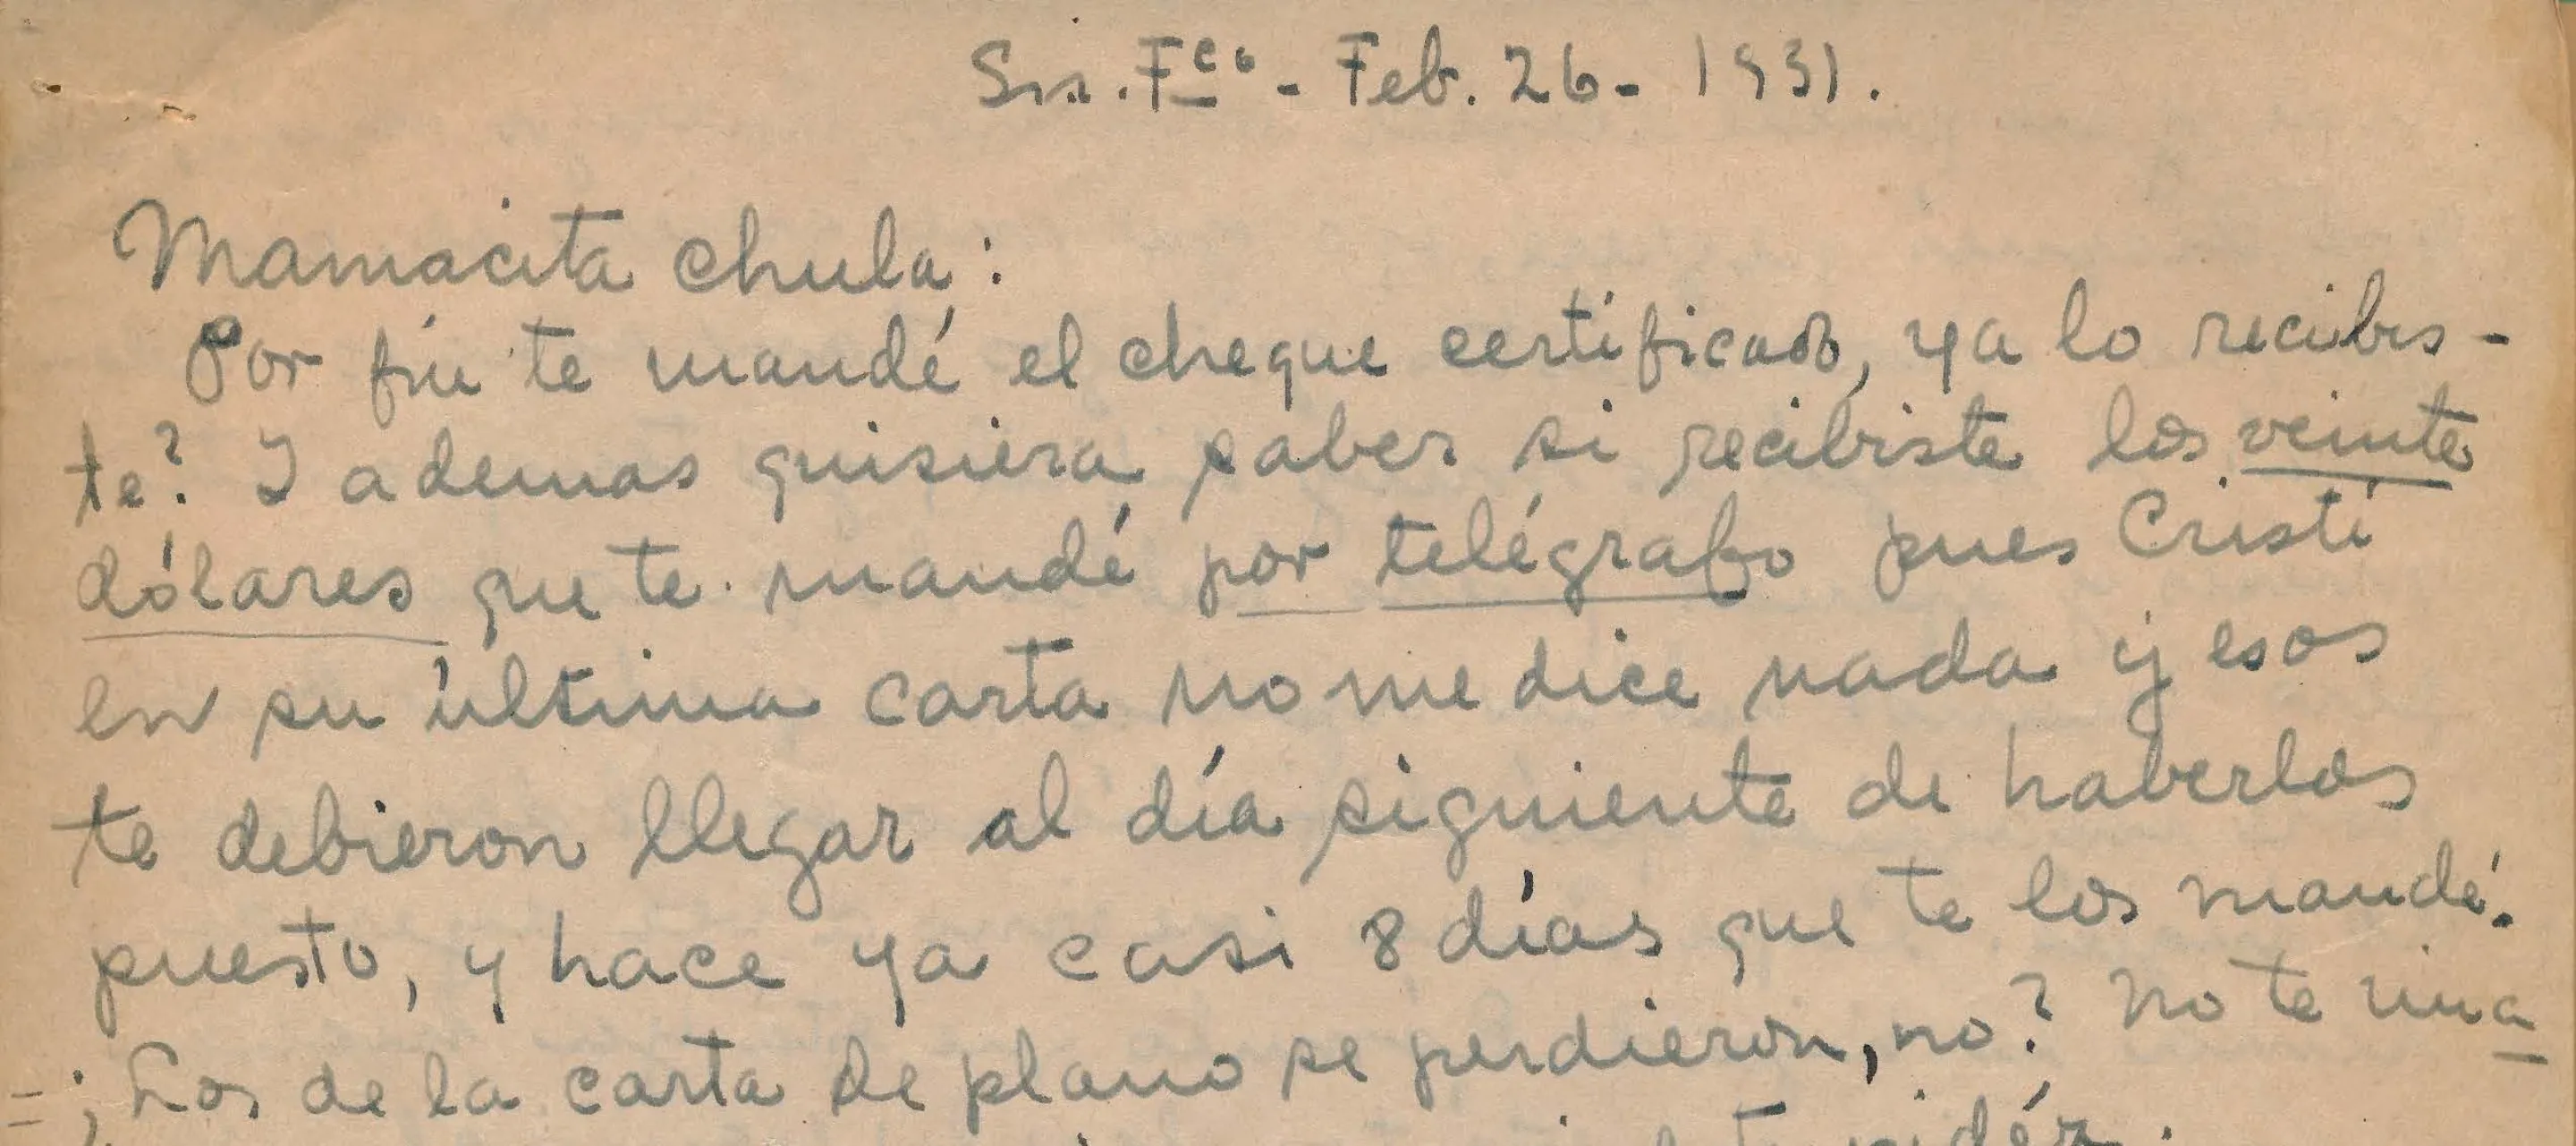 Sn. Fco. - Feb. 26 - 1931.
Mamacita chula:
Por fin te mandé el cheque certificado, ya lo recibis-
te? I ademas quisiera saber si recibiste los veinte
dólares que te mandé por telégrafo pues Cristi
en su última carta no me dice nada y esos
te debieron llegar al día siguiente de haberlos
puesto, y hace ya casi 8 días que te los mandé.
= ¿Los de la carta de plano se perdieron, no? No te